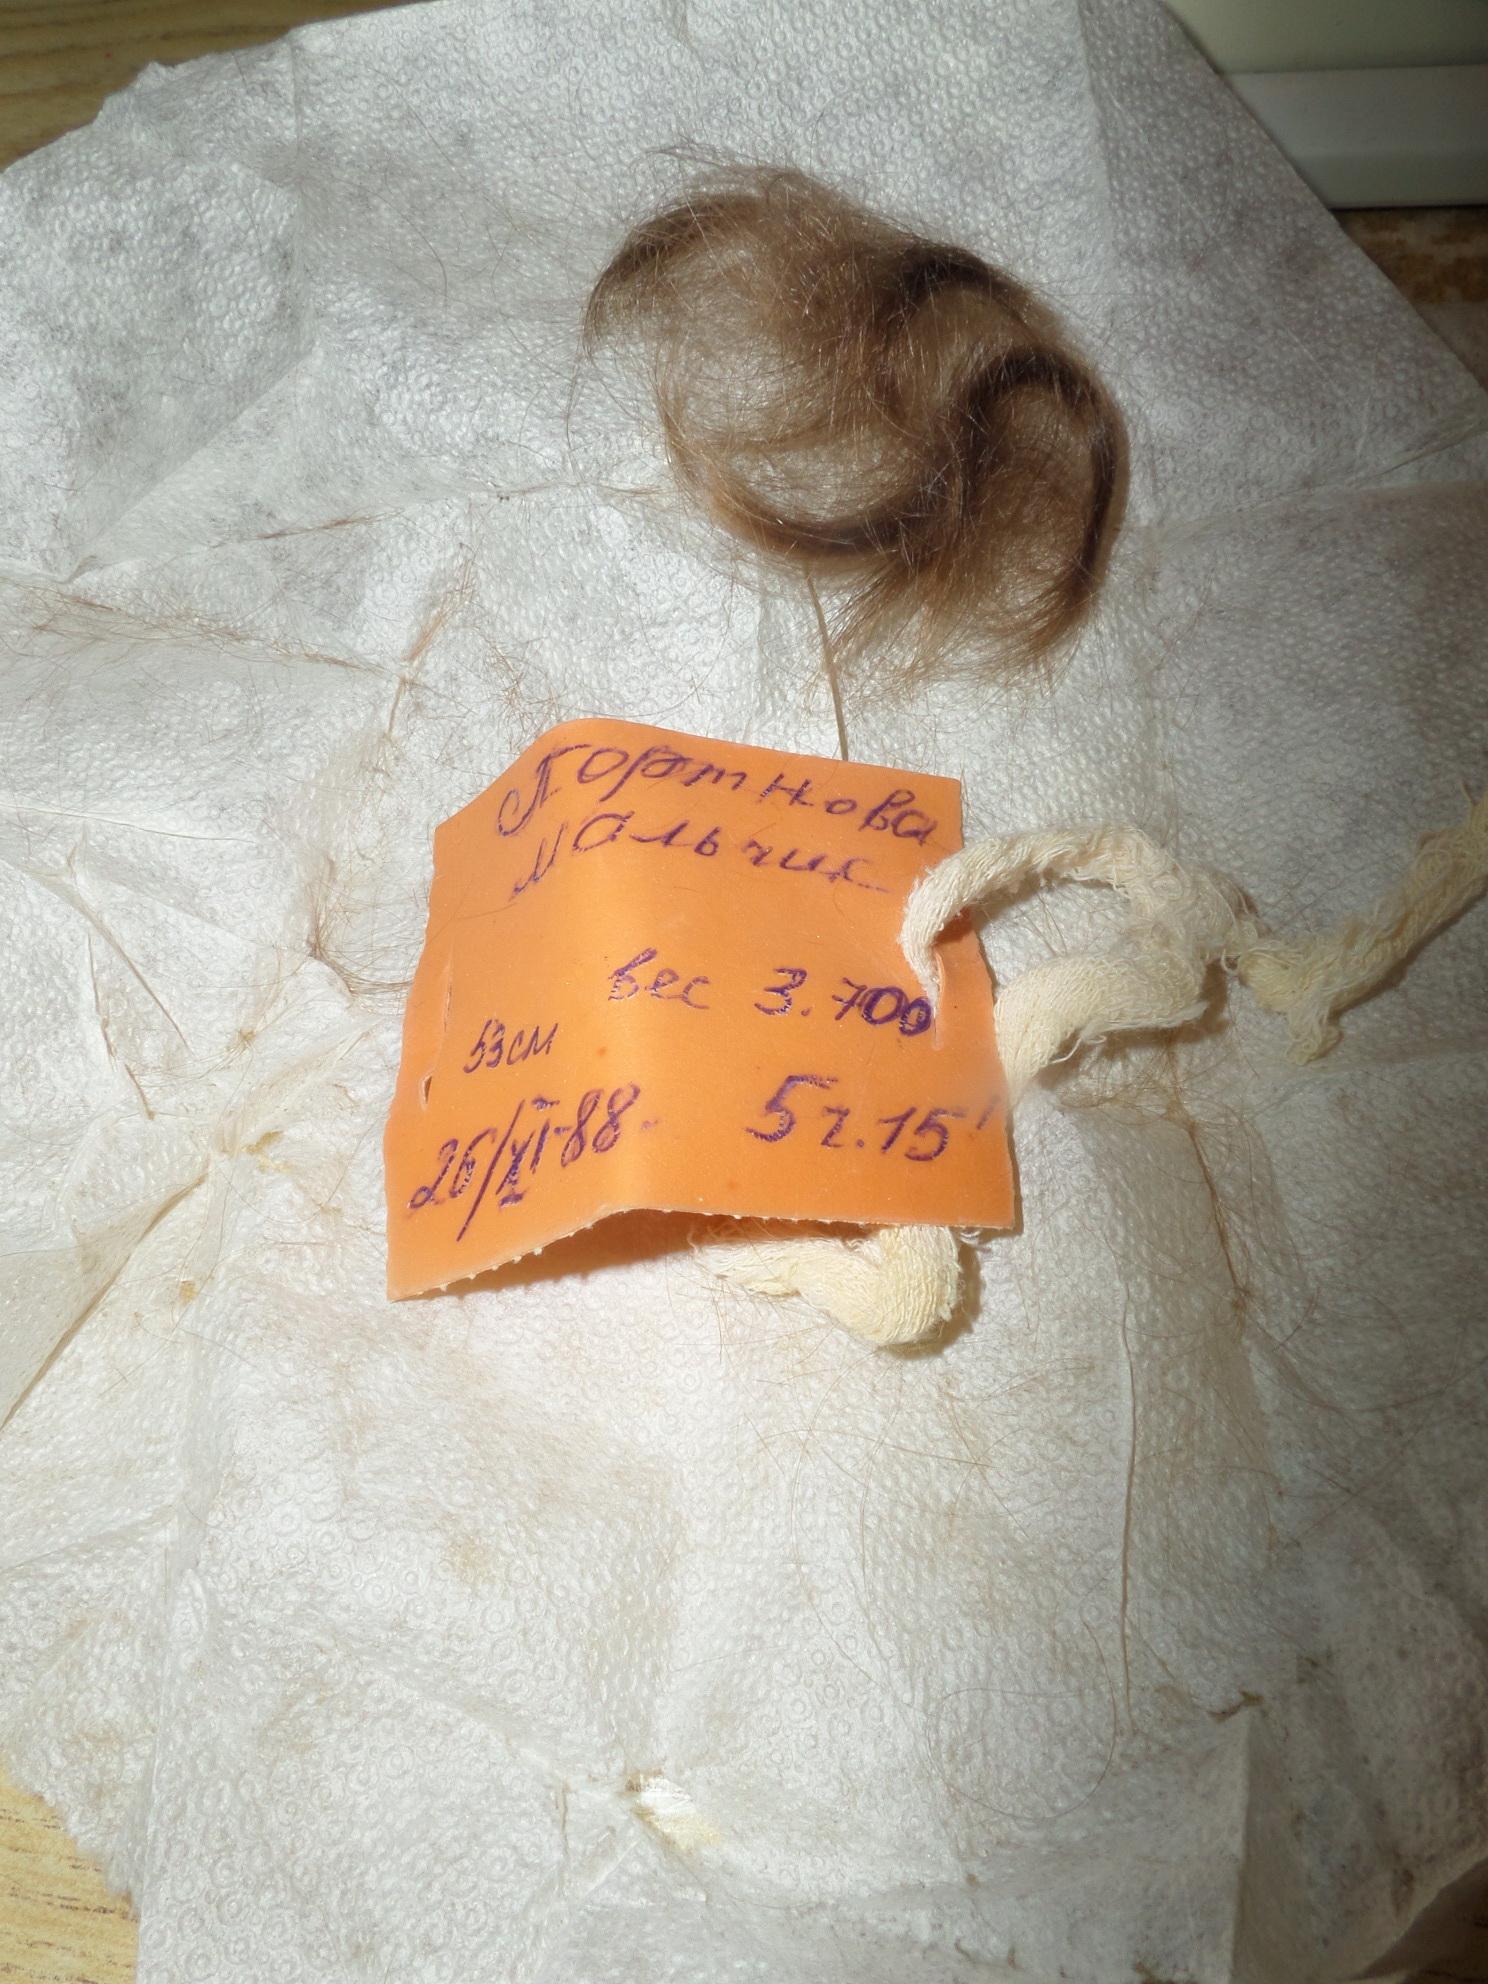 Портнова
мальчик
вес 3.700
53см
26/XI-88. 5ч.15'